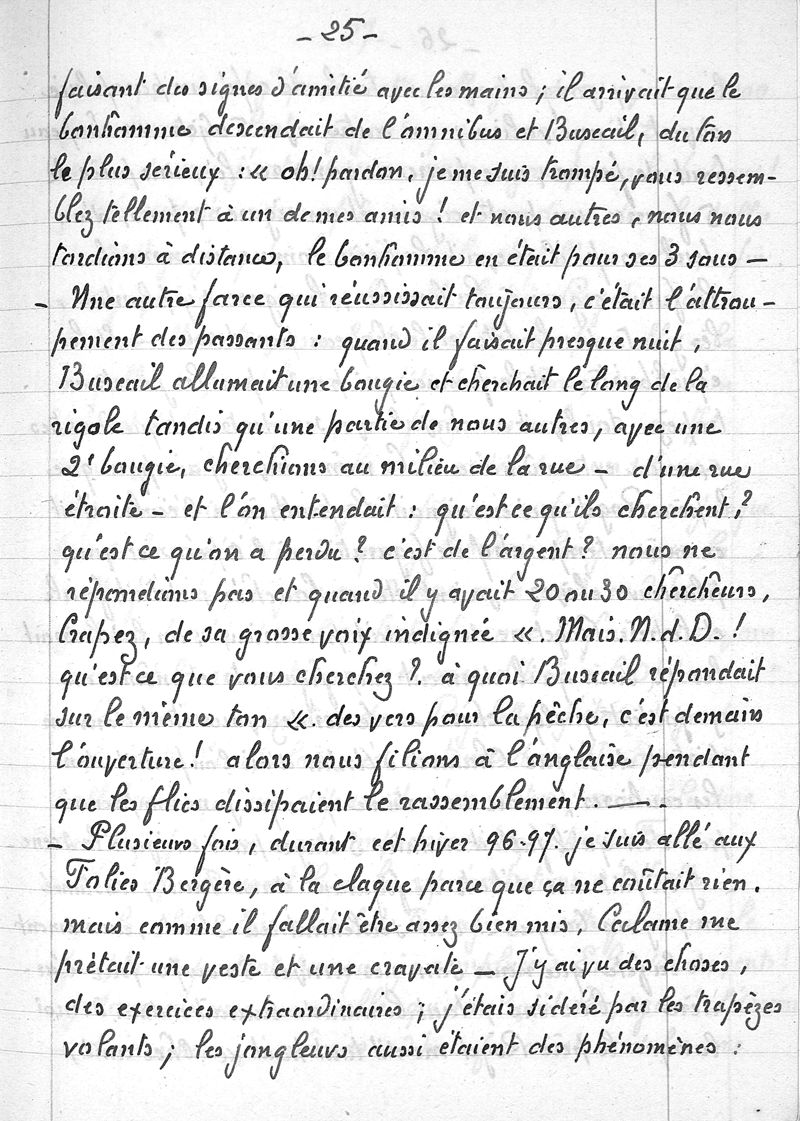 - 25 -
faisant des signes d'amitié avec les mains ; il arrivait que le
bonhomme descendait de l'omnibus et Buscail, du ton
le plus sérieux : « oh ! pardon, je me suis trompé, vous ressem-
blez tellement à un de mes amis ! et nous autres, nous nous
tordions à distance, le bonhomme en était pour ses 3 sous —
- Une autre farce qui réussissait toujours, c'était l'attrou-
pement des passants : quand il faisait presque nuit,
Buscail allumait une bougie et cherchait le long de la
rigole tandis qu'une partie de nous autres, avec une
2e bougie, cherchions au milieu de la rue - d'une rue
étroite - et l'on entendait : qu'est ce qu'ils cherchent ?
qu'est ce qu'on a perdu ? c'est de l'argent ? nous ne
répondions pas et quand il y avait 20 ou 30 chercheurs,
Crapez, de sa grosse voix indignée «. Mais. N. d. D. !
qu'est ce que vous cherchez ?. à quoi Buscail répondait
sur le même ton «. des vers pour la pêche, c'est demain
l'ouverture ! alors nous filions à l'anglaise pendant
que les flics dissipaient le rassemblement. — .
- Plusieurs fois, durant cet hiver 96-97. je suis allé aux
Folies Bergère, à la claque parce que ça ne coûtait rien.
mais comme il fallait être assez bien mis, Calame me
prêtait une veste et une cravate — J'y ai vu des choses,
des exercices extraordinaires ; j'étais sidéré par les trapèzes
volants ; les jongleurs aussi étaient des phénomènes :